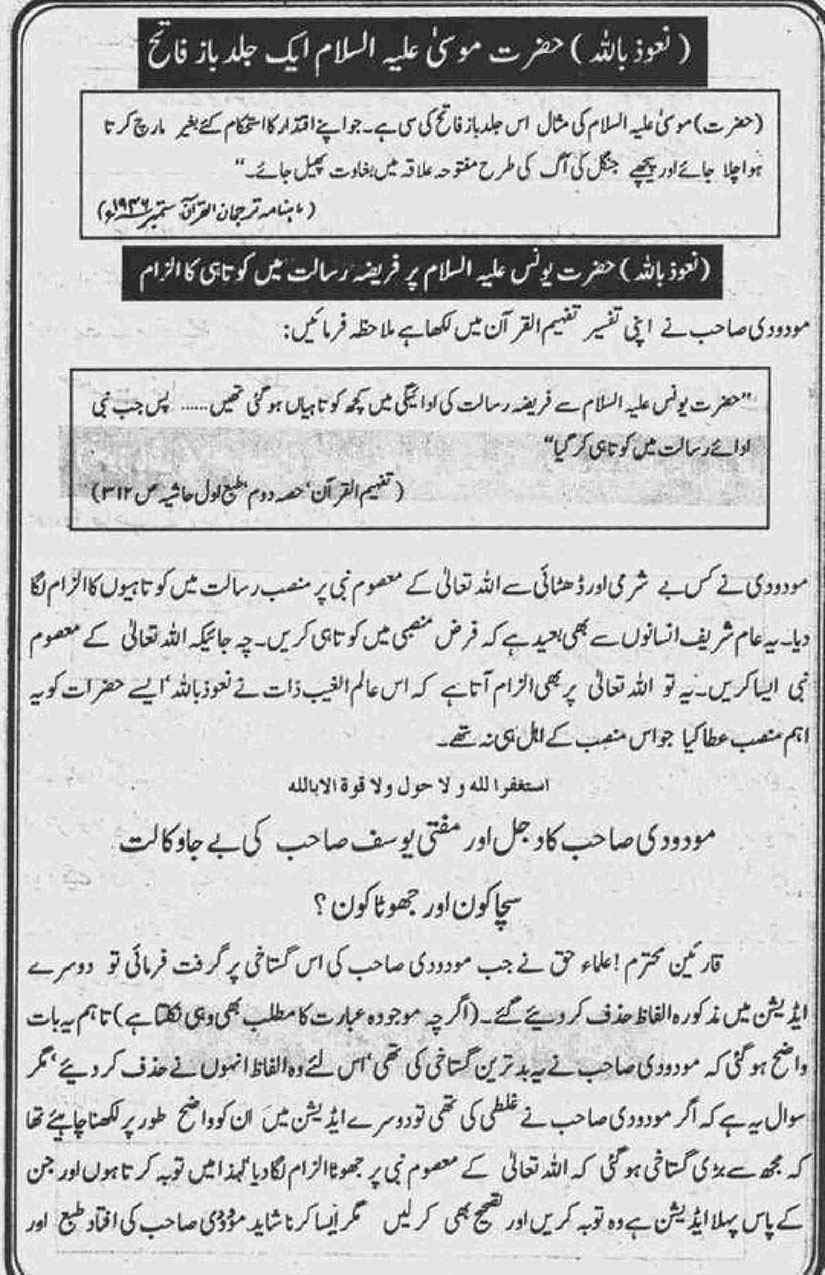 (نعوذ باللہ) حضرت موسیٰ علیہ السلام ایک جلد باز فاتح
(حضرت) موسیٰ علیہ السلام کی مثال اس جلد باز فاتح کی سی ہے۔ جو اپنے اقتدار کا استحکام کئے بغیر مارچ کرتا
ہوا چلا جائے اور پیچھے جنگل کی آگ کی طرح مفتوحہ علاقہ میں بغاوت پھیل جائے۔"
(ماہنامہ ترجمان القرآن ستمبر ۱۹۴۶ء)
(نعوذ باللہ) حضرت یونس علیہ السلام پر فریضہ رسالت میں کوتاہی کا الزام
مودودی صاحب نے اپنی تفسیر تفہیم القرآن میں لکھا ہے ملاحظہ فرمائیں:
"حضرت یونس علیہ السلام سے فریضہ رسالت کی ادائیگی میں کچھ کوتاہیاں ہوگئی تھیں...... پس جب نبی
ادائے رسالت میں کوتاہی کر گیا"
(تفہیم القرآن' حصہ دوم' طبع اول حاشیہ ص ۳۱۲)
مودودی نے کس بے شرمی اور ڈھٹائی سے اللہ تعالیٰ کے معصوم نبی پر منصب رسالت میں کوتاہیوں کا الزام لگا
دیا۔ یہ عام شریف انسانوں سے بھی بعید ہے کہ فرض منصبی میں کوتاہی کریں۔ چہ جائیکہ اللہ تعالیٰ کے معصوم
نبی ایسا کریں۔ یہ تو اللہ تعالیٰ پر بھی الزام آتا ہے کہ اس عالم الغیب ذات نے نعوذ باللہ' ایسے حضرات کو یہ
اہم منصب عطا کیا جو اس منصب کے اہل ہی نہ تھے۔
استغفر اللہ و لا حول ولا قوۃ الا باللہ
مودودی صاحب کا دجل اور مفتی یوسف صاحب کی بے جا وکالت
سچا کون اور جھوٹا کون؟
قارئین محترم! علماء حق نے جب مودودی صاحب کی اس گستاخی پر گرفت فرمائی تو دوسرے
ایڈیشن میں مذکورہ الفاظ حذف کر دیئے گئے۔ (اگرچہ موجودہ عبارت کا مطلب بھی وہی نکلتا ہے) تاہم یہ بات
واضح ہوگئی کہ مودودی صاحب نے یہ بدترین گستاخی کی تھی' اس لئے وہ الفاظ انہوں نے حذف کر دیئے' مگر
سوال یہ ہے کہ اگر مودودی صاحب نے غلطی کی تھی تو دوسرے ایڈیشن میں ان کو واضح طور پر لکھنا چاہیئے تھا
کہ مجھ سے بڑی گستاخی ہوگئی کہ اللہ تعالیٰ کے معصوم نبی پر جھوٹا الزام لگا دیا' لہٰذا میں توبہ کرتا ہوں اور جن
کے پاس پہلا ایڈیشن ہے وہ توبہ کریں اور تصحیح بھی کرلیں مگر ایسا کرنا شاید مودودی صاحب کی افتاد طبع اور